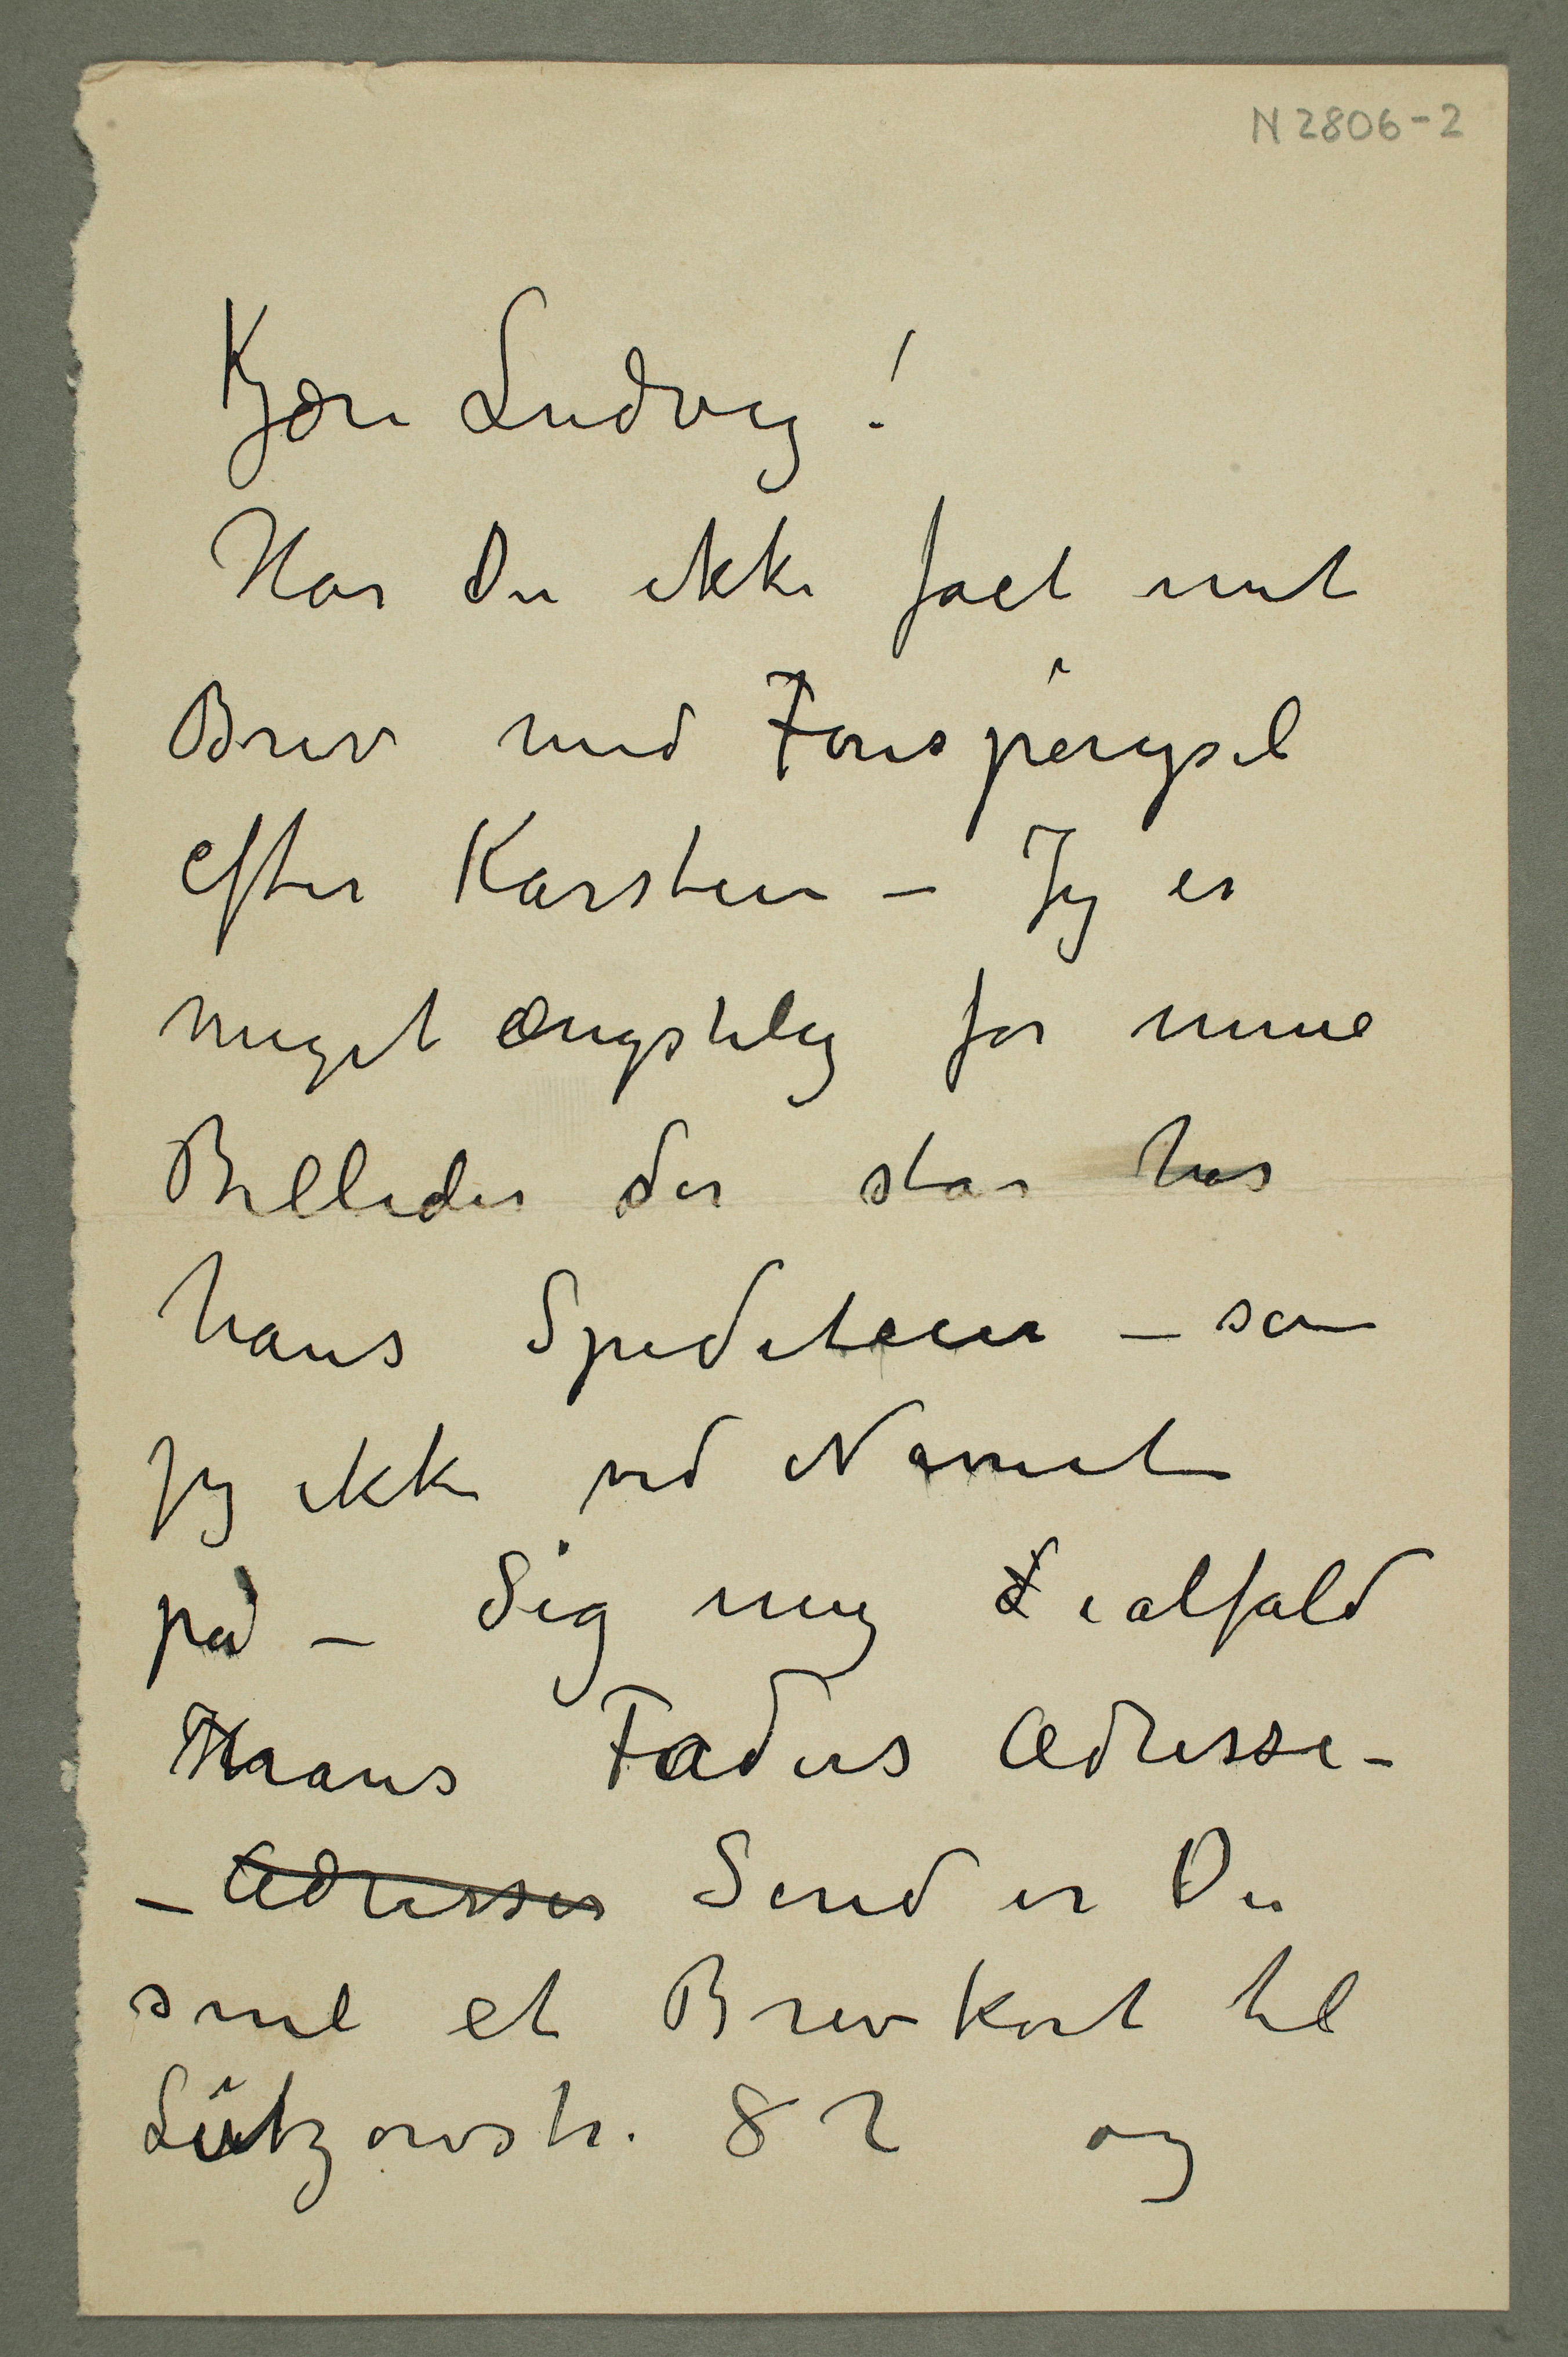 N 2806-2
Kjære Ludvig!
Har Du ikke fået mit
Brev med Forespørgsel
efter Karsten – Jeg er
meget ængstelig for mine
Billeder der står hos
hans Spediteur – som
jeg ikke ved Navnet
på – Sig mig ialfald
Hans Faders Adresse –
– Adresser Send er Du
snil et Brevkort til
Lützowstr. 82 og